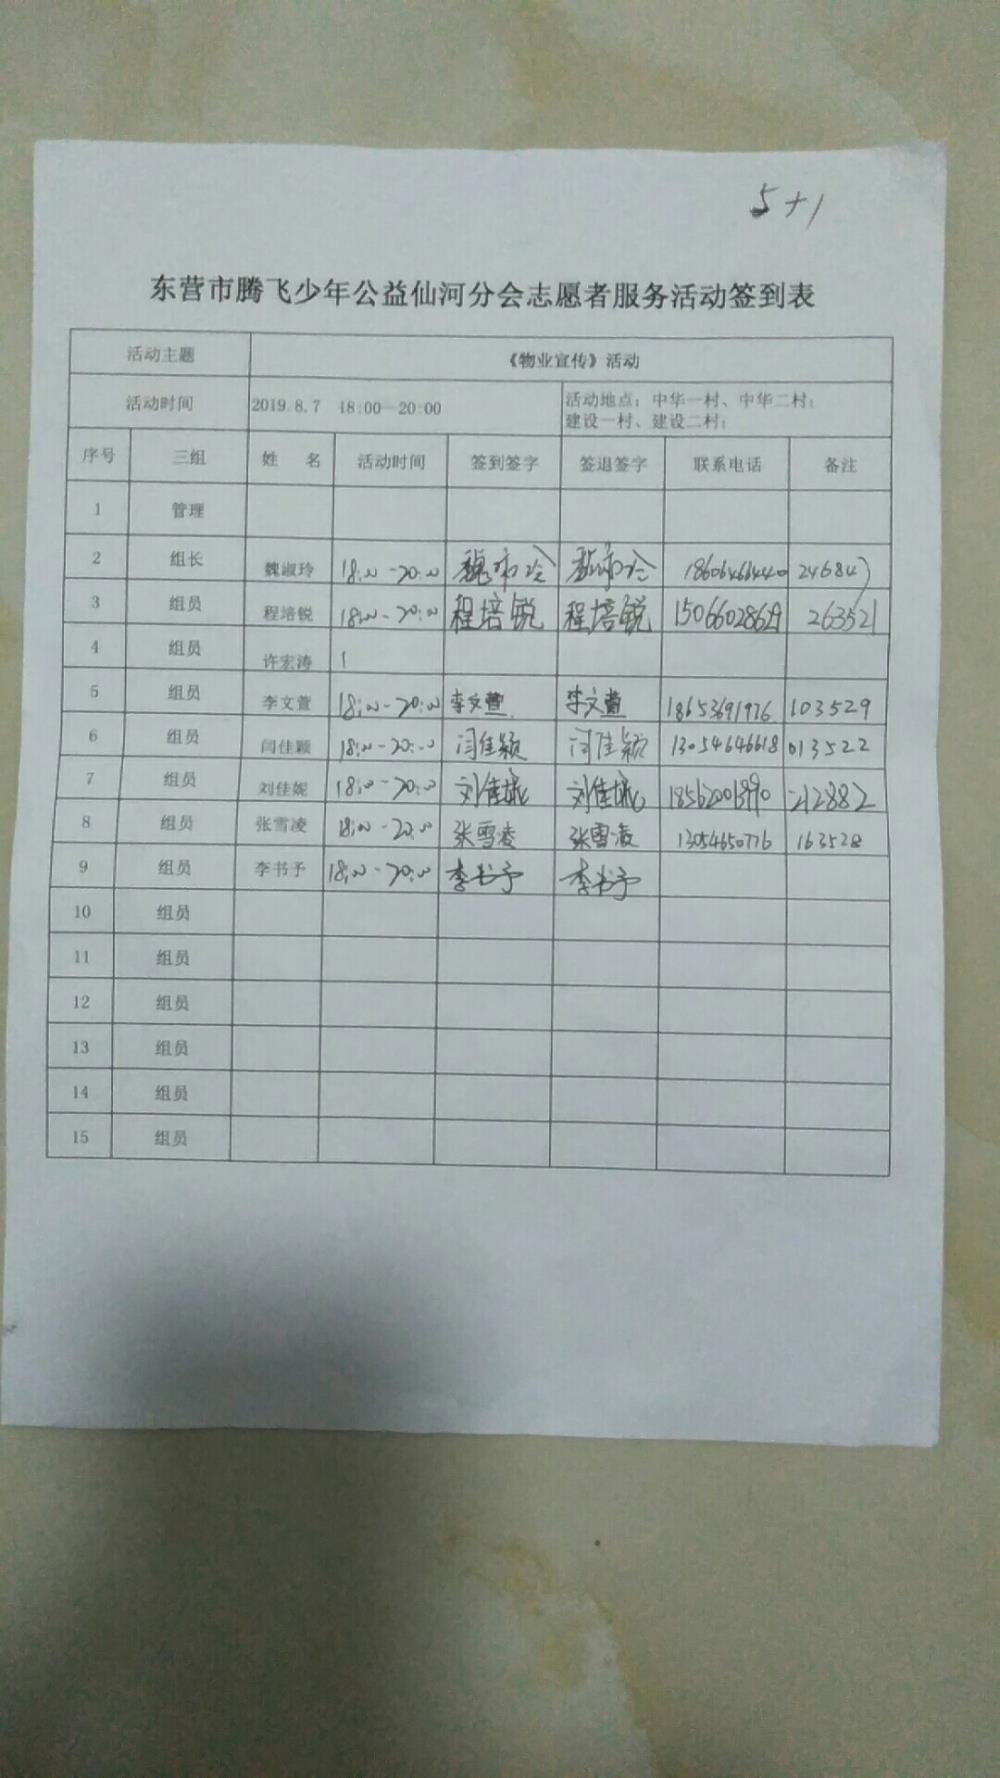 5+1
东营市腾飞少年公益仙河分会志愿者服务活动签到表
活动主题 《物业宣传》活动
活动时间 2019.8.7 18:00—20:00 活动地点：中华一村、中华二村；
建设一村、建设二村；
序号 三组 姓 名 活动时间 签到签字 签退签字 联系电话 备注
1 管理
2 组长 魏淑玲 18:00-20:00 246847
3 组员 程培锐 18:00-20:00 程培锐 程培锐 263521
4 组员 许宏涛
5 组员 李文萱 18:00-20:00 李文萱 李文萱 18653691976 103529
6 组员 闫佳颖 18:00-20:00 闫佳颖 闫佳颖 13054646618 013522
7 组员 刘佳妮 18:00-20:00 刘佳妮 刘佳妮 212882
8 组员 张雪凌 18:00-20:00 张雪凌 张雪凌 13054650776 163528
9 组员 李书予 18:00-20:00 李书予 李书予
10 组员
11 组员
12 组员
13 组员
14 组员
15 组员